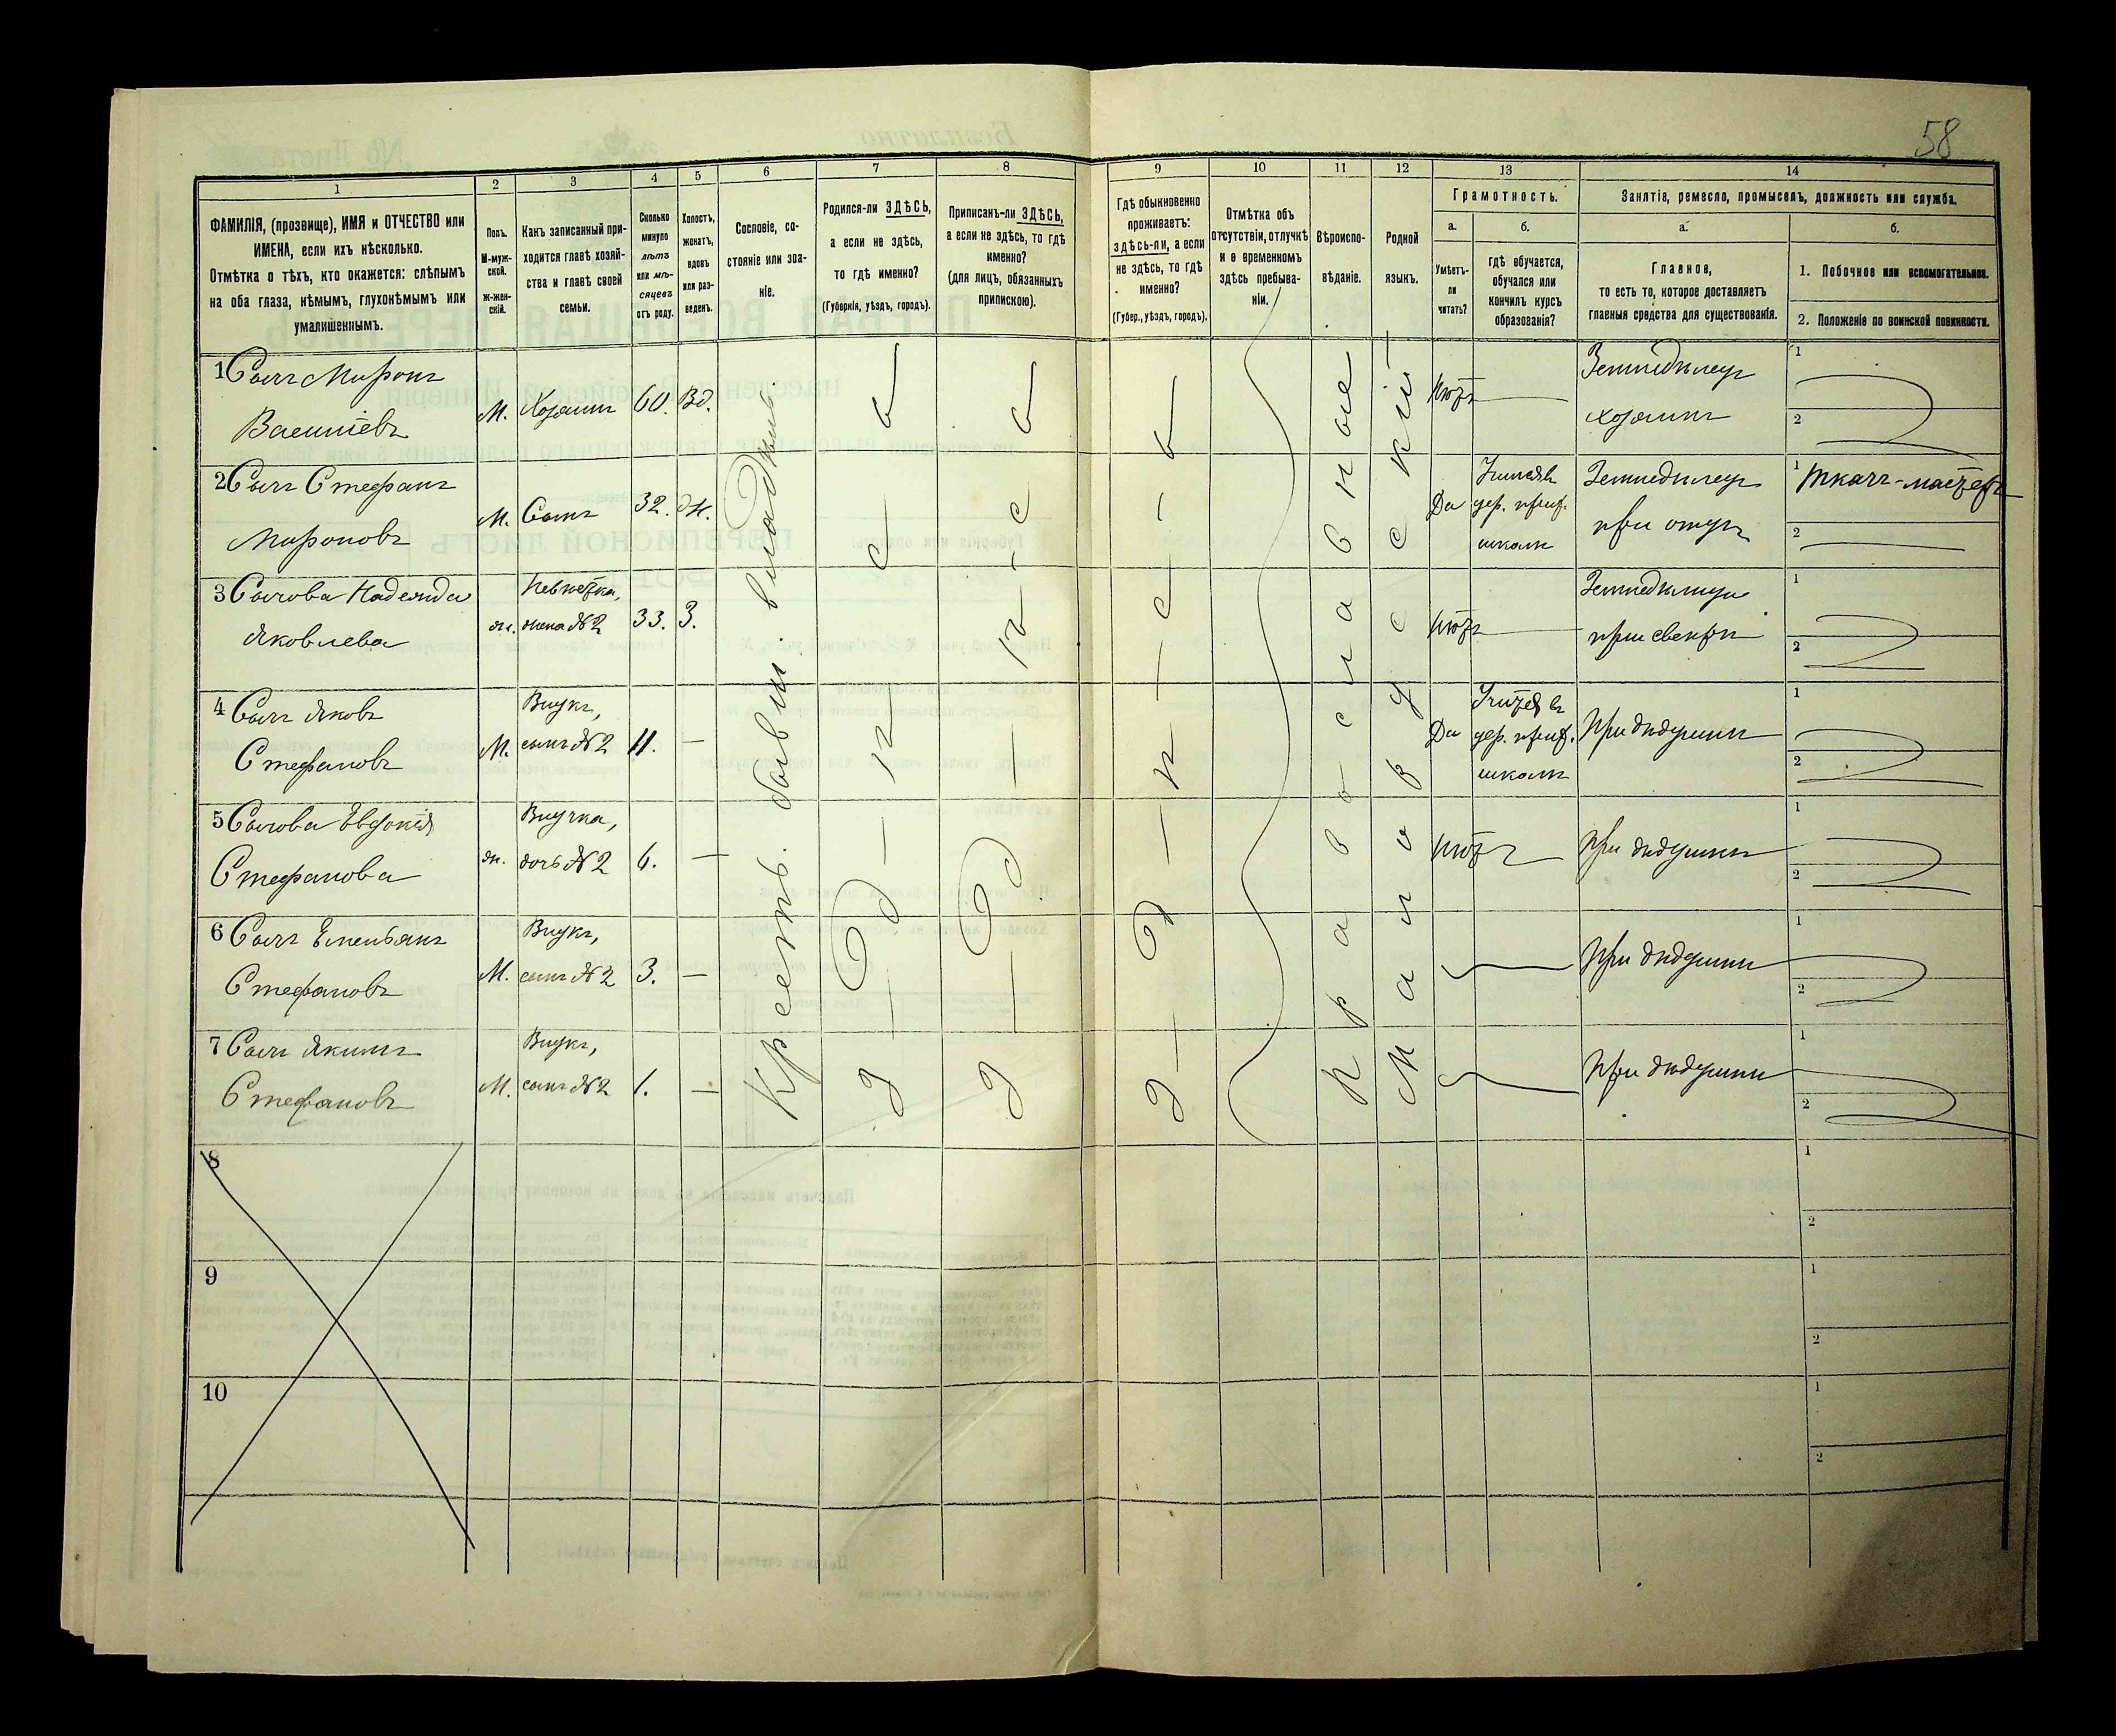 58
1 2 3 4 5 6 7 8 9 10 11 12 13 14
ФАМИЛІЯ, (прозвище), ИМЯ и ОТЧЕСТВО или
ИМЕНА, если ихъ нѣсколько.
Отмѣтка о тѣхъ, кто окажется: слѣпымъ
на оба глаза, нѣмымъ, глухонѣмымъ или
умалишеннымъ.
Полъ.
М-муж-
ской.
Ж-жен-
скій.
Какъ записанный при-
ходится главѣ хозяй-
ства и главѣ своей
семьи.
Сколько
минуло
лѣтъ
или мѣ-
сяцевъ
отъ роду.
Холостъ,
женатъ,
вдовъ
или раз-
веденъ.
Сословіе, со-
стояніе или зва-
ніе.
Родился-ли ЗДѢСЬ,
а если не здѣсь,
то гдѣ именно?
(Губернія, уѣздъ, городъ).
Приписанъ-ли ЗДѢСЬ,
а если не здѣсь, то гдѣ
именно?
(для лицъ, обязанныхъ
припискою).
Гдѣ обыкновенно
проживаетъ:
здѣсь-ли, а если
не здѣсь, то гдѣ
именно?
(Губер., уѣздъ, городъ).
Отмѣтка объ
отсутствіи, отлучкѣ
и о временномъ
здѣсь пребыва-
ніи.
Вѣроиспо-
вѣданіе.
Родной
языкъ.
Грамотность.
а.
Умѣетъ-
ли
читать?
б.
гдѣ обучается,
обучался или
кончилъ курсъ
образованія?
Занятіе, ремесло, промыселъ, должность или служба.
а.
Главное,
то есть то, которое доставляетъ
главныя средства для существованія.
б.
1. Побочное или вспомогательное.
2. Положеніе по воинской повинности.
1 Сычъ Миронъ
Василіевъ
М. Хозяинъ 60. Вд.
Нѣтъ
Земледѣлецъ
хозяинъ
1
2
2 Сычъ Стефанъ
Мироновъ
М. Сынъ 32. Ж.
Да
дер. приф.
школѣ
Земледѣлецъ
при отцѣ
1 Ткачъ-мастеръ
2
3 Сычова Надежда
Яковлева
ж.
Невѣстка,
жена №2
33. З.
Нѣтъ
Земледѣлица
при свекрѣ
1
2
4 Сычъ Яковъ
Стефановъ
М.
Внукъ,
сынъ №2
11. —
Да
Учится въ
дер. приф.
школѣ
При дѣдушкѣ
1
2
5 Сычова Евдокія
Стефанова
ж.
Внучка,
дочь №2
6. —
Нѣтъ
При дѣдушкѣ
1
2
6 Сычъ Емельянъ
Стефановъ
М.
Внукъ,
сынъ №2
3. —
При дѣдушкѣ
1
2
7 Сычъ Якимъ
Стефановъ
М.
Внукъ,
сынъ №2
1. —
При дѣдушкѣ
1
2
Крестъ. бывш. владѣл.
З — д — ѣ — с — ь
З — д — ѣ — с — ь
З — д — ѣ — с — ь
Православное
Малорусскій
8
1
2
9
1
2
10
1
2